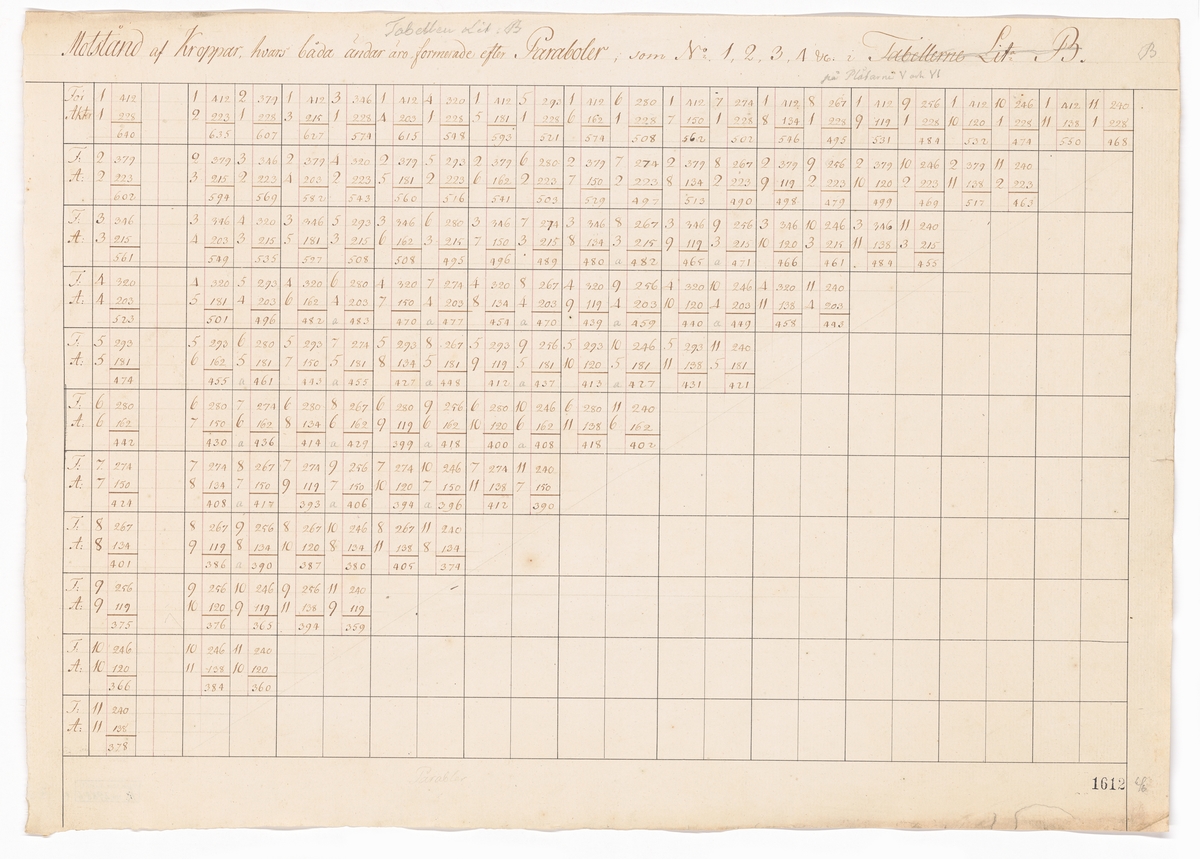 Tabellen Lit. B
Motstånd af Kroppar, hvars båda ändar äro formerade efter Paraboler, som No. 1, 2, 3, 4 &c. i Tabellerne Lit: B.
B
på Plåtarne V och VI
För 1 412 1 412 2 379 1 412 3 346 1 412 4 320 1 412 5 293 1 412 6 280 1 412 7 274 1 412 8 267 1 412 9 256 1 412 10 246 1 412 11 240
Akter 1 228 2 223 1 228 3 215 1 228 4 203 1 228 5 181 1 228 6 162 1 228 7 150 1 228 8 134 1 228 9 119 1 228 10 120 1 228 11 138 1 228
640 635 607 627 574 615 548 593 521 574 508 562 502 546 495 531 484 532 474 550 468
F: 2 379 2 379 3 346 2 379 4 320 2 379 5 293 2 379 6 280 2 379 7 274 2 379 8 267 2 379 9 256 2 379 10 246 2 379 11 240
A: 2 223 3 215 2 223 4 203 2 223 5 181 2 223 6 162 2 223 7 150 2 223 8 134 2 223 9 119 2 223 10 120 2 223 11 138 2 223
602 594 569 582 543 560 516 541 503 529 497 513 490 498 479 499 469 517 463
F: 3 346 3 346 4 320 3 346 5 293 3 346 6 280 3 346 7 274 3 346 8 267 3 346 9 256 3 346 10 246 3 346 11 240
A: 3 215 4 203 3 215 5 181 3 215 6 162 3 215 7 150 3 215 8 134 3 215 9 119 3 215 10 120 3 215 11 138 3 215
561 549 535 527 508 508 495 496 489 480 a 482 465 a 471 466 461 484 455
F: 4 320 4 320 5 293 4 320 6 280 4 320 7 274 4 320 8 267 4 320 9 256 4 320 10 246 4 320 11 240
A: 4 203 5 181 4 203 6 162 4 203 7 150 4 203 8 134 4 203 9 119 4 203 10 120 4 203 11 138 4 203
523 501 496 482 a 483 470 a 477 454 a 470 439 a 459 440 a 449 458 443
F: 5 293 5 293 6 280 5 293 7 274 5 293 8 267 5 293 9 256 5 293 10 246 5 293 11 240
A: 5 181 6 162 5 181 7 150 5 181 8 134 5 181 9 119 5 181 10 120 5 181 11 138 5 181
474 455 a 461 443 a 455 427 a 448 412 a 437 413 a 427 431 421
F: 6 280 6 280 7 274 6 280 8 267 6 280 9 256 6 280 10 246 6 280 11 240
A: 6 162 7 150 6 162 8 134 6 162 9 119 6 162 10 120 6 162 11 138 6 162
442 430 a 436 414 a 429 399 a 418 400 a 408 418 402
F: 7 274 7 274 8 267 7 274 9 256 7 274 10 246 7 274 11 240
A: 7 150 8 134 7 150 9 119 7 150 10 120 7 150 11 138 7 150
424 408 a 417 393 a 406 394 a 396 412 390
F: 8 267 8 267 9 256 8 267 10 246 8 267 11 240
A: 8 134 9 119 8 134 10 120 8 134 11 138 8 134
401 386 a 390 387 380 405 374
F: 9 256 9 256 10 246 9 256 11 240
A: 9 119 10 120 9 119 11 138 9 119
375 376 365 394 359
F: 10 246 10 246 11 240
A: 10 120 11 138 10 120
366 384 360
F: 11 240
A: 11 138
378
1612